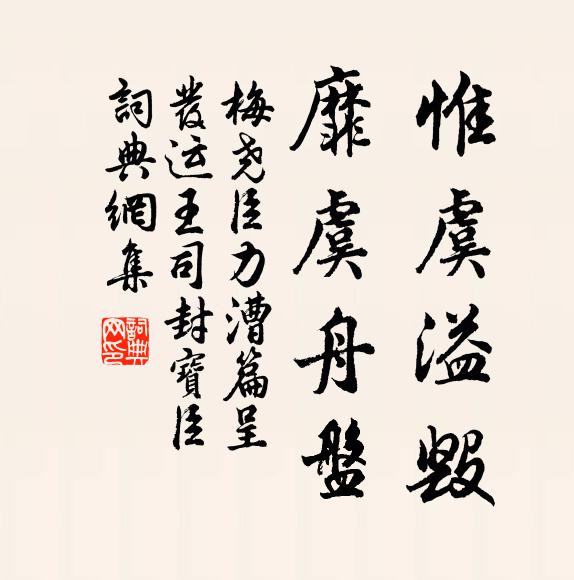 惟虞溢毀
靡虞舟盤
梅尧臣力漕篇呈
發运王司封寶臣
詞典網集
詞典
网印